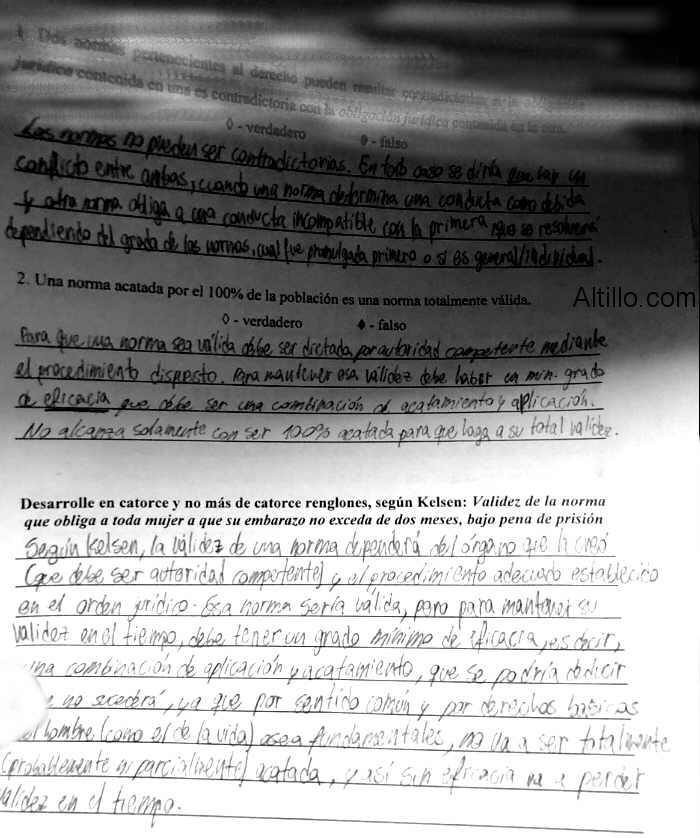 1. Dos normas pertenecientes al derecho pueden resultar contradictorias si la obligación
jurídica contenida en una es contradictoria con la obligación jurídica contenida en la otra.
◊ - verdadero ♦ - falso
Las normas no pueden ser contradictorias. En todo caso se diría que hay un
conflicto entre ambas, cuando una norma determina una conducta como debida
y otra norma obliga a una conducta incompatible con la primera, que se resolverá
dependiendo del grado de las normas, cual fue promulgada primero o si es general/individual.
2. Una norma acatada por el 100% de la población es una norma totalmente válida.
Altillo.com
◊ - verdadero ♦ - falso
Para que una norma sea válida debe ser dictada por autoridad competente mediante
el procedimiento dispuesto. Para mantener esa validez debe haber un mín. grado
de eficacia que debe ser una combinación de acatamiento y aplicación.
No alcanza solamente con ser 100% acatada para que haga a su total validez.
Desarrolle en catorce y no más de catorce renglones, según Kelsen: Validez de la norma
que obliga a toda mujer a que su embarazo no exceda de dos meses, bajo pena de prisión
Según Kelsen, la válidez de una norma dependerá del órgano que la creó
(que debe ser autoridad competente) y el procedimiento adecuado establecido
en el orden jurídico. Esa norma sería válida, pero para mantener su
validez en el tiempo, debe tener un grado mínimo de eficacia, es decir,
una combinación de aplicación y acatamiento, que se podría deducir
no sucederá, ya que por sentido común y por derechos básicos
del hombre (como el de la vida) osea fundamentales, no va a ser totalmente
(probablemente ni parcialmente) acatada, y así sin eficacia va a perder
validez en el tiempo.